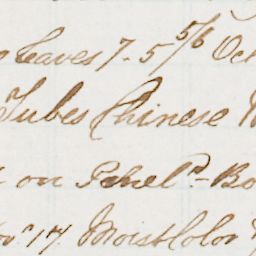 Leaves 7-5 5/6 Oct
Tubes Chinese W
on Panel^d - Bo
Nov 17 Moist Color